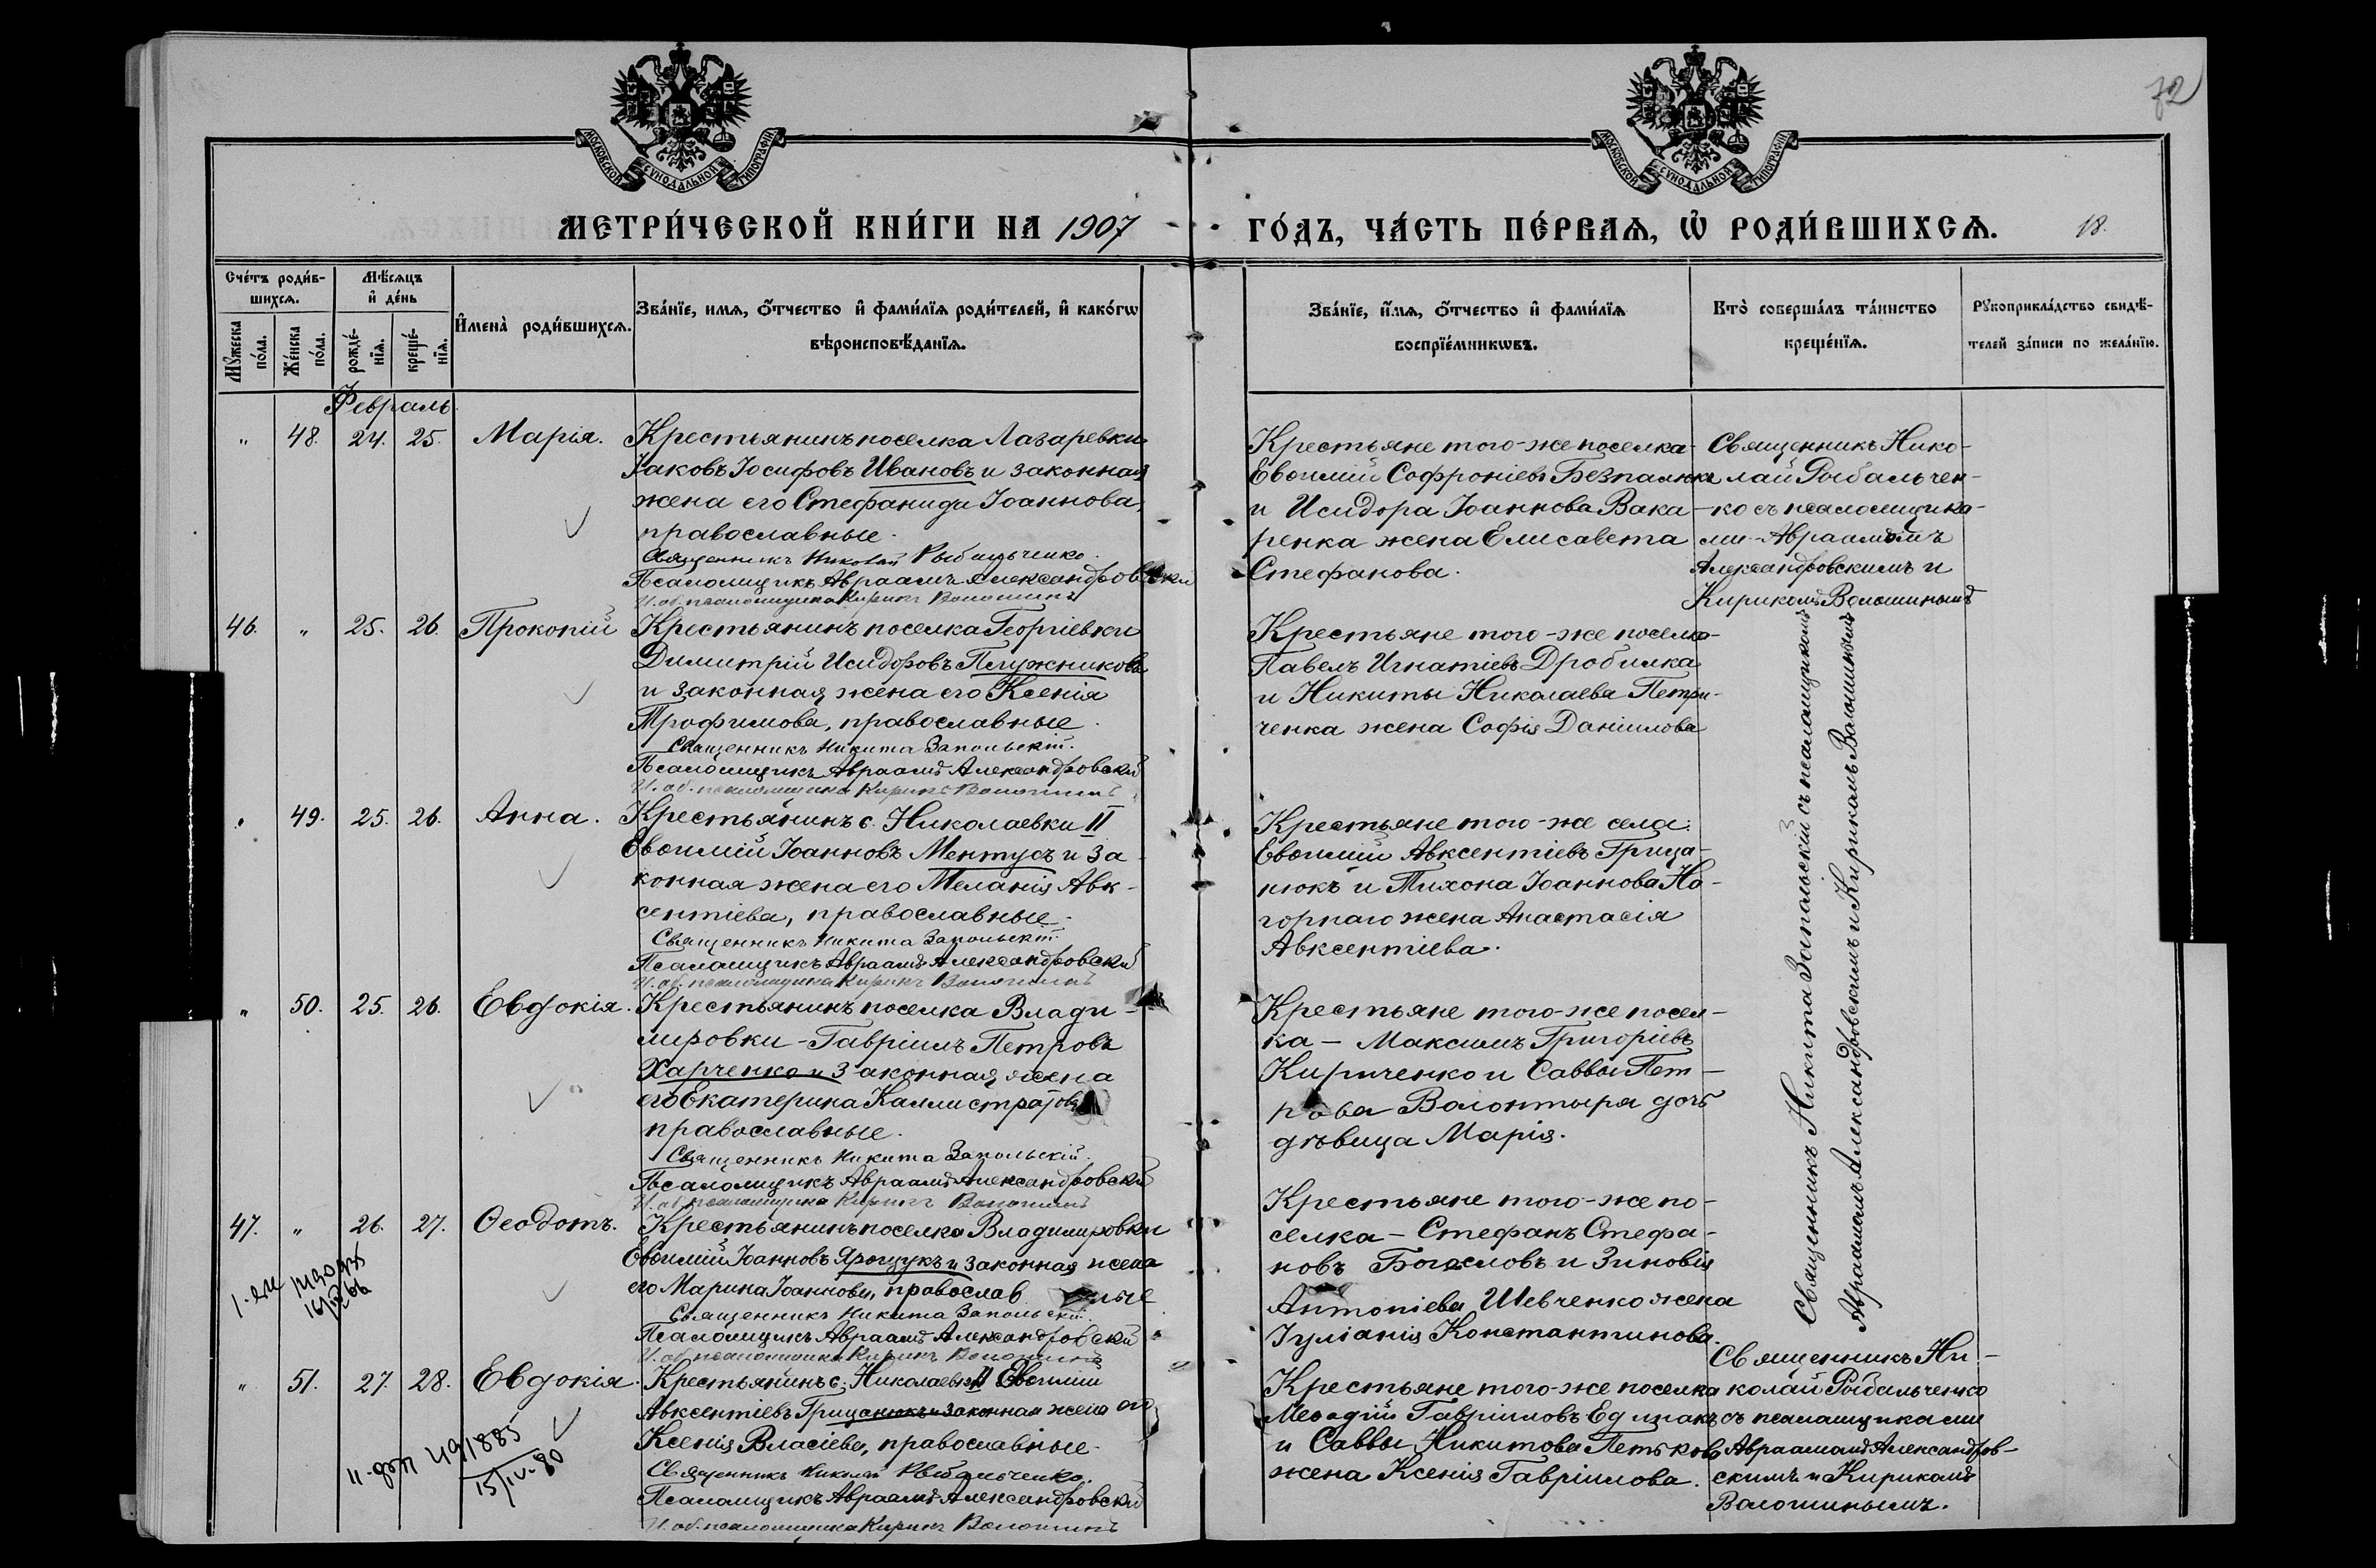 72
МОСКОВСКОЙ СѴНОДАЛЬНОЙ ТИПОГРАФІИ
МОСКОВСКОЙ СѴНОДАЛЬНОЙ ТИПОГРАФІИ
МЕТРИ́ЧЕСКОЙ КНИ́ГИ НА 1907
ГО́ДЪ, ЧА́СТЬ ПЕ́РВАѦ, Ѽ РОДИ́ВШИХСѦ. 18.
Сче́тъ роди́в-
шихсѧ.
Мꙋжеска по́ла.
Же́нска по́ла.
Мѣ́сѧцъ
и҆ де́нь
рожде́-
нїѧ.
креще́-
нїѧ.
И҆мена̀ роди́вшихсѧ.
Зва́нїе, имѧ, о҆́тчество и҆ фами́лїѧ роди́телей, и҆ како́гѡ
вѣроисповѣ́данїѧ.
Зва́нїе, и҆́мѧ, о҆́тчество и҆ фами́лїѧ
воспрїе́мникѡвъ.
Кто̀ соверша́лъ та́инство
креще́нїѧ.
Рꙋкоприкла́дство свидѣ́-
телей за́писи по жела́нїю.
Февраль.
" 48. 24. 25. Марія.
Крестьянинъ поселка Лазаревки
Іаковъ Іосифовъ Ивановъ и законная
жена его Стефанида Іоаннова,
православные.
Священникъ Николай Рыбальченко.
Псаломщикъ Авраамъ Александровскій
И. об. псаломщика Кирикъ Волошинъ
Крестьяне того-же поселка
Евѳимій Софроніевъ Безпалька
и Исидора Іоаннова Вака-
ренка жена Елисавета
Стефанова.
Священникъ Нико-
лай Рыбальчен-
ко съ псаломщика-
ми Авраамомъ
Александровскимъ и
Кирикомъ Волошинымъ
46. " 25. 26. Прокопій
Крестьянинъ поселка Георгіевки
Димитрій Исидоровъ Плужниковъ
и законная жена его Ксенія
Трофимова, православные.
Священникъ Никита Запольскій.
Псаломщикъ Авраамъ Александровскій
И. об. псаломщика Кирикъ Волошинъ
Крестьяне того-же поселка
Павелъ Игнатіевъ Дробилка
и Никиты Николаева Петри-
ченка жена Софія Даніилова
" 49. 25. 26. Анна.
Крестьянинъ с. Николаевки II
Евѳимій Іоанновъ Ментусъ и за-
конная жена его Меланія Авк-
сентіева, православные.
Священникъ Никита Запольскій
Псаломщикъ Авраамъ Александровскій
И. об. псаломщика Кирикъ Волошинъ
Крестьяне того-же села:
Евѳимій Авксентіевъ Грица-
нюкъ и Тихона Іоаннова На-
горнаго жена Анастасія
Авксентіева.
" 50. 25. 26. Евдокія.
Крестьянинъ поселка Влади-
мировки - Гавріилъ Петровъ
Харченко и законная жена
его Екатерина Каллистратова
православные.
Священникъ Никита Запольскій.
Псаломщикъ Авраамъ Александровскій
И. об. псаломщика Кирикъ Волошинъ
Крестьяне того-же посел-
ка - Максимъ Григоріевъ
Кириченко и Саввы Пет-
рова Волонтыря дочь
дѣвица Марія.
Священникъ Никита Запольскій съ псаломщиками
Авраамомъ Александровскимъ и Кирикомъ Волошинымъ
47. " 26. 27. Ѳеодотъ.
Крестьянинъ поселка Владимировки
Евѳимій Іоанновъ Ярощукъ и законная жена
его Марина Іоаннова, православ ные
Священникъ Никита Запольскій.
Псаломщикъ Авраамъ Александровскій
И. об. псаломщика Кирикъ Волошинъ
Крестьяне того-же по-
селка - Стефанъ Стефа-
новъ Богословъ и Зиновія
Антоніева Шевченко жена
Іуліанія Константинова.
" 51. 27. 28. Евдокія.
Крестьянинъ с. Николаевки II Евѳимій
Авксентіевъ Грицанюкъ и законная жена его
Ксенія Власіева, православные.
Священникъ Николай Рыбальченко.
Псаломщикъ Авраамъ Александровскій
И. об. псаломщика Кирикъ Волошинъ
49/885
15/IV-80
Крестьяне того-же поселка
Меѳодій Гавріиловъ Едınакъ
и Саввы Никитова Петькова
жена Ксенія Гавріилова.
Священникъ Ни-
колай Рыбальченко
съ псаломщиками
Авраамомъ Александров-
скимъ и Кирикомъ
Волошинымъ.